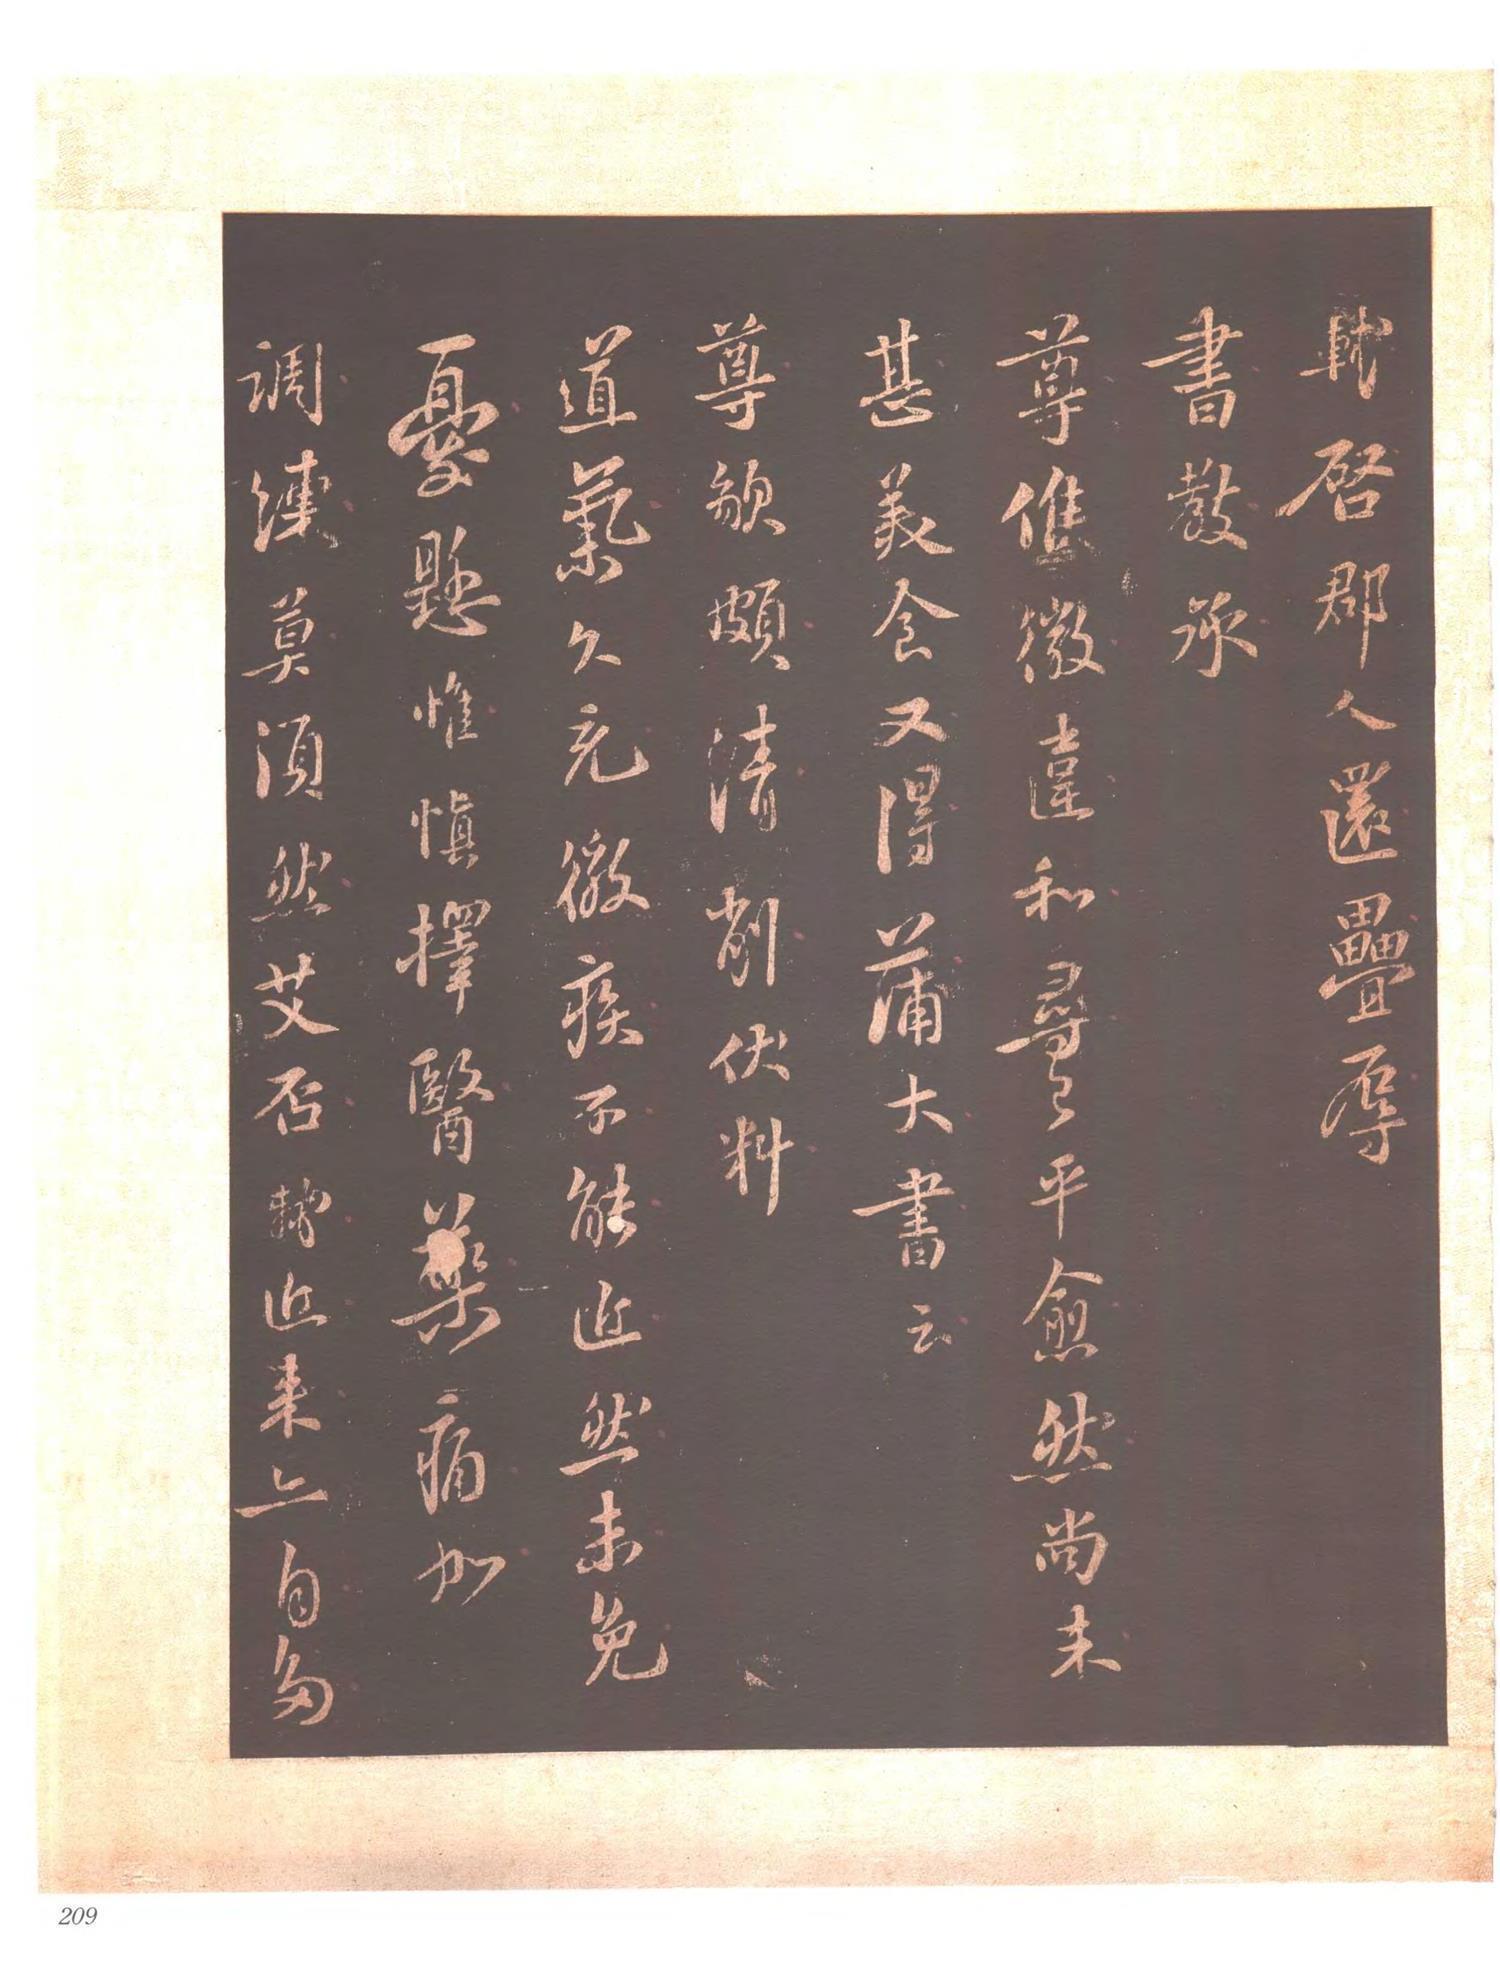 軾啓郡人還疊辱
書教承
尊候微違和尋已平愈然尚未
甚美食又得蒲大書云
尊貌頗清削伏料
道氣久充微疾不能近然未免
憂懸惟慎擇醫藥痛加
調練莫須然艾否軾近來亦自多
209